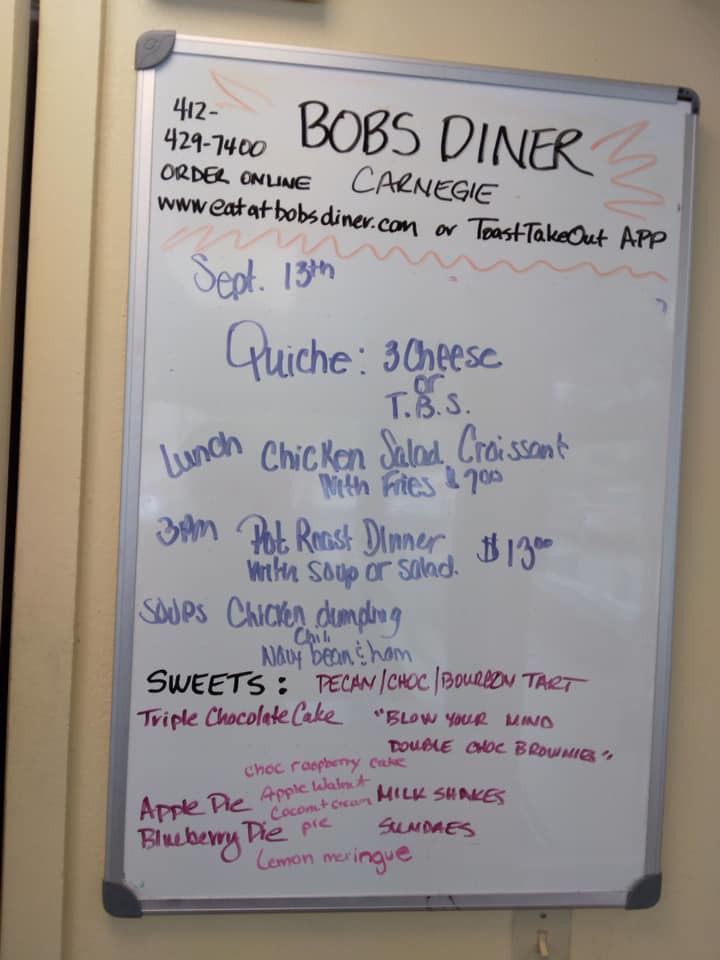 412-
429-7400
BOBS DINER
ORDER ONLINE CARNEGIE
www.eatatbobsdiner.com or ToastTakeOut APP
Sept. 13th
Quiche: 3 Cheese
or
T.B.S.
Lunch Chicken Salad Croissant
With Fries $ 900
3PM Pot Roast Dinner $13.00
with soup or salad.
SOUPS Chicken dumpling
Chili
Navy bean & ham
SWEETS: PECAN/CHOC/BOURBON TART
Triple Chocolate Cake "BLOW YOUR MIND
DOUBLE CHOC BROWNIES"
choc raspberry cake
Apple Pie Apple Walnut MILK SHAKES
Coconut cream
Blueberry Pie pie SUNDAES
Lemon meringue